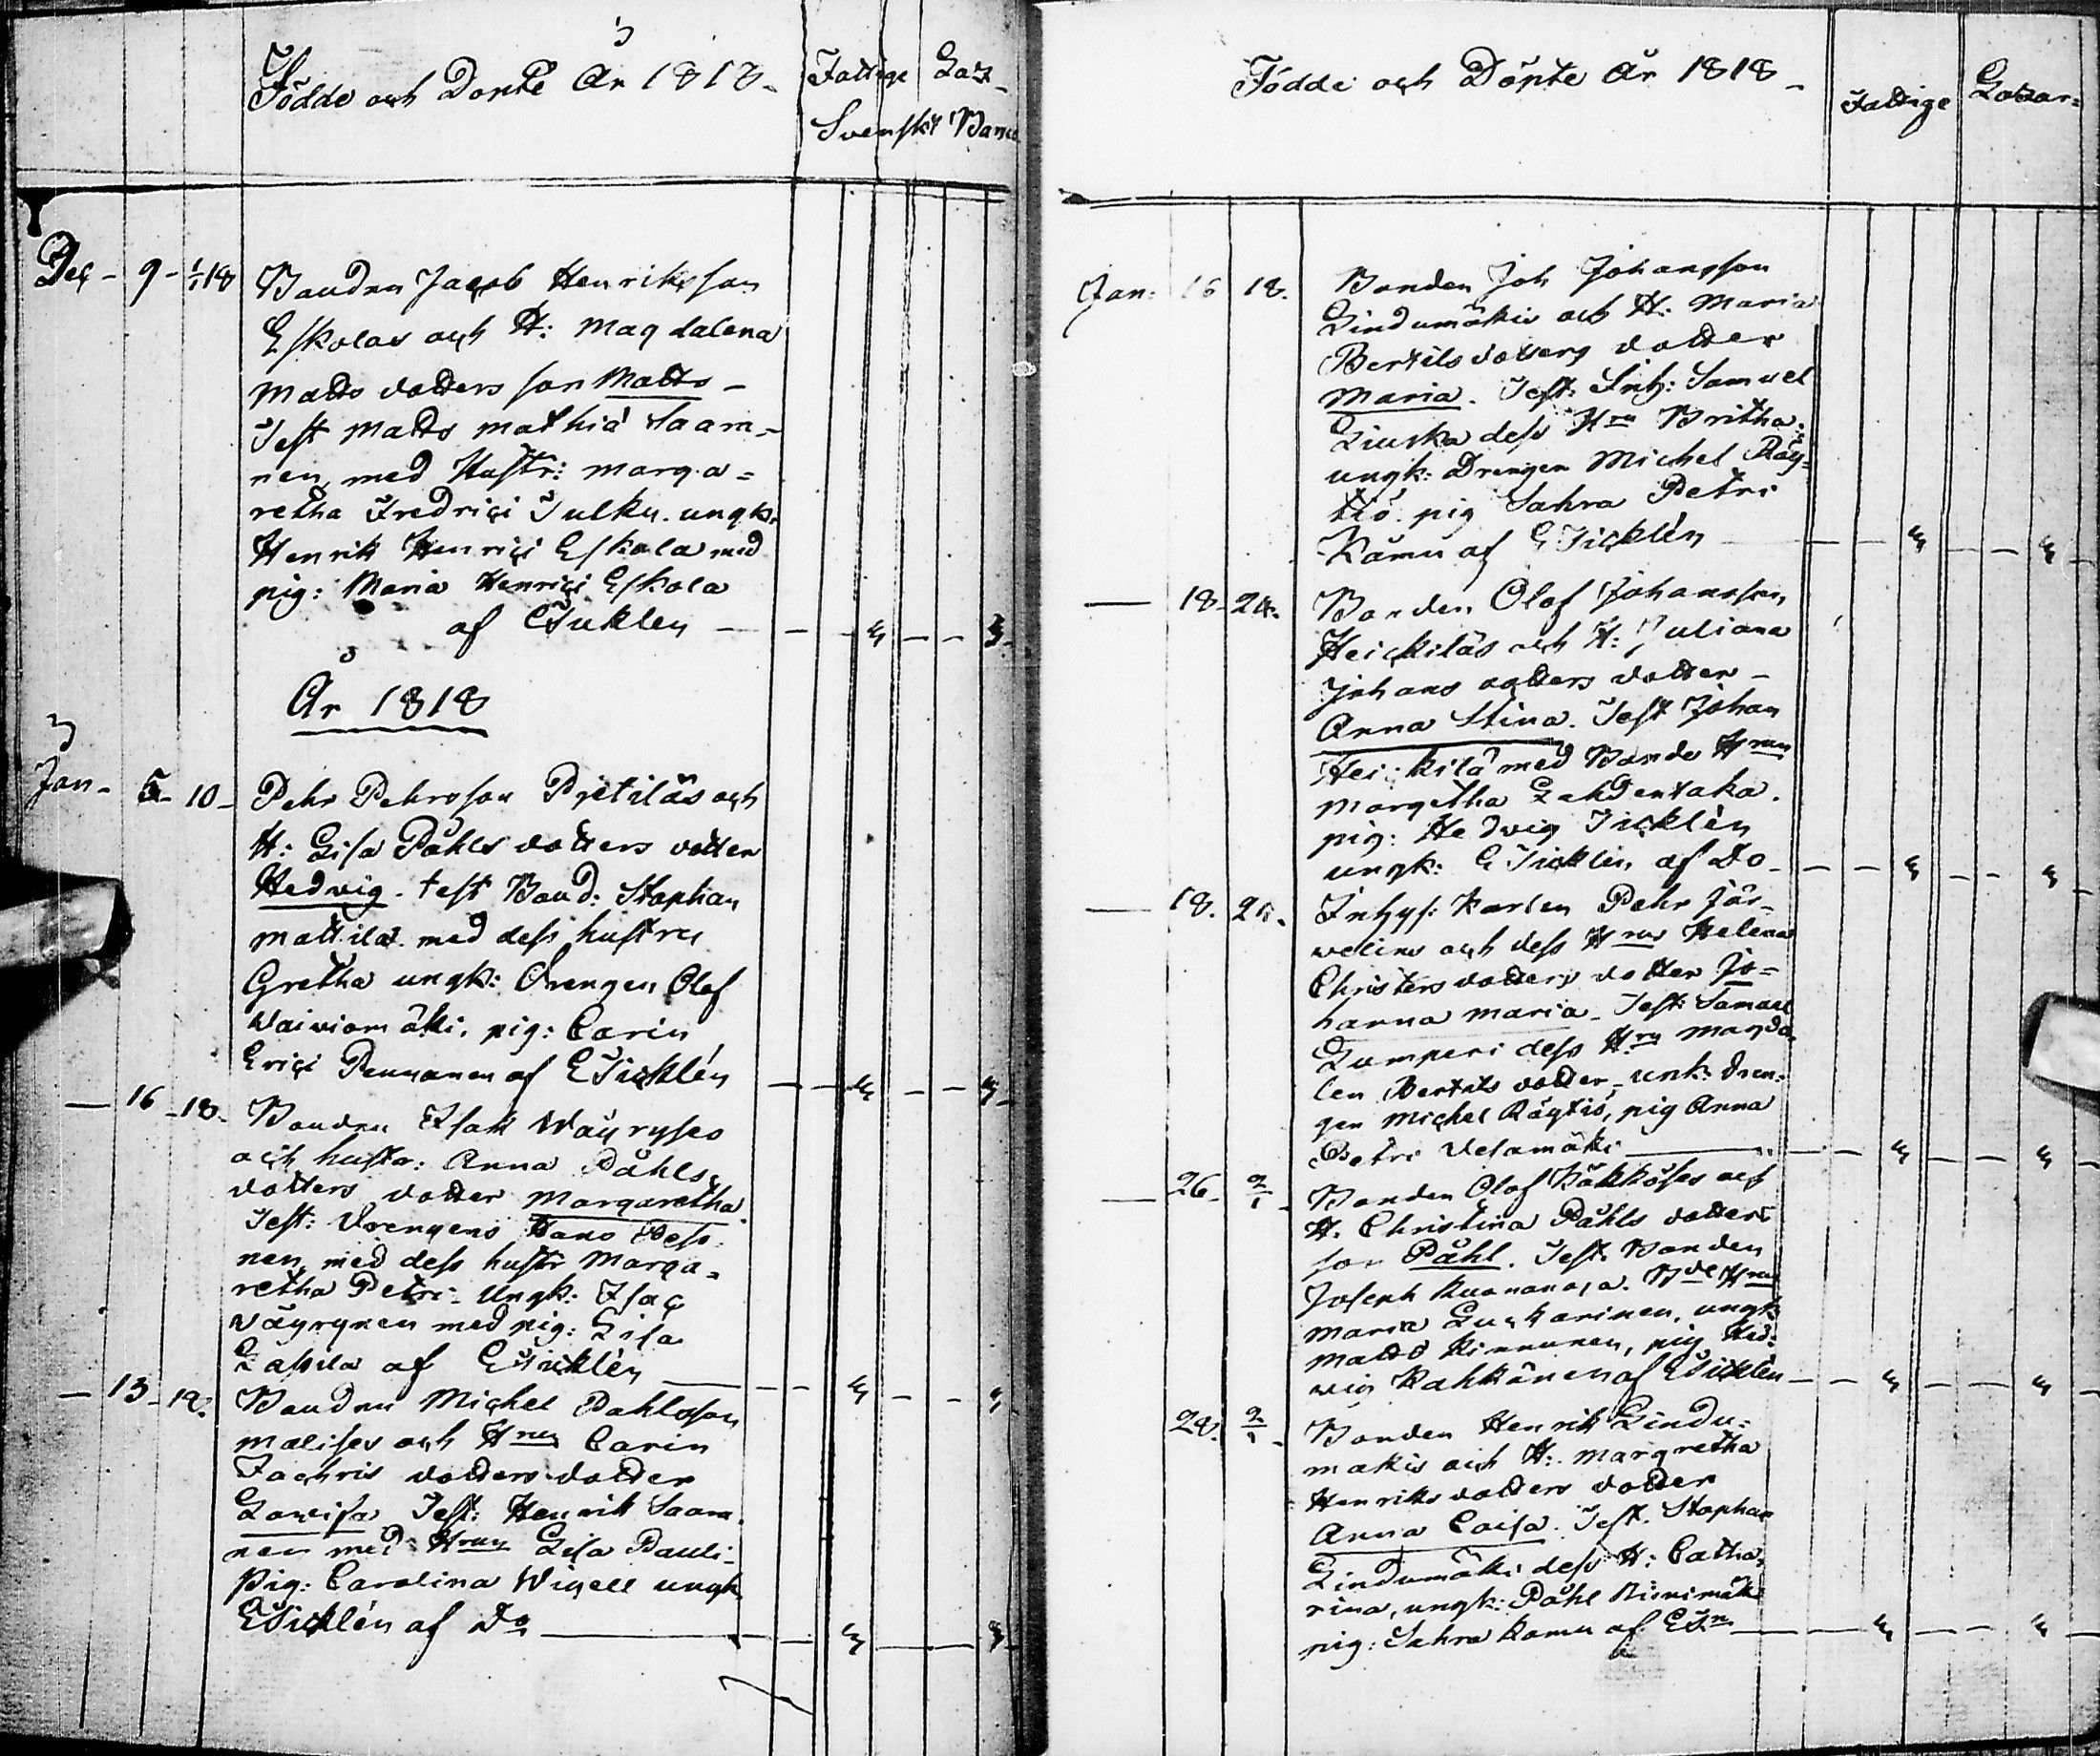 Födde och Döpte År 1818.
Fattige Laz.
Svenskt Banco
Dec - 9 - 1/1 18
Bonden Jacob Henriksson
Eskolas och H: Magdalena
Matts dotters son Matts -
Test Matts Mathiæ Saara-
nen, med Hustr: Marga=
retha Fredrici Julku. ungk:
Henrik Henrici Eskola med
pig: Maria Henrici Eskola
af EFicklen
År 1818
Jan - 5 - 10 -
Pehr Pehrsson Pietiläs och
H: Lisa Påhls dotters dotter
Hedvig. test Bond: Staphan
Mattila med dess hustru
Gretha ungk: Drengen Olof
Waiviomäki, pig: Carin
Erici Pennanen af EFicklén
— 16 - 18 -
Bonden Isak Wäyryses
och hustr: Anna Påhls
dotters dotter Margaretha.
Test: Drengens Hans
nen, med dess hustr Marga=
retha Petri. Ungk: Isac
Wäyrynen med pig: Lisa
af EFicklén
— 13 - 18.
Bonden Michel Pahlsson
Malises och Hru Carin
Zachris dotters dotter
Lovisa Test: Henrik Saara
nen med Hrun Lisa Pauli-
Pig: Carolina Wigell ungk
EFicklén af Do
Födde och Döpte År 1818 -
Fattige Lazar=
Jan: 16 18.
Bonden Joh Johansson
Lindumäkis och H: Maria
Bertils dotters dotter
Maria. Test: Inh: Samuel
Liuska dess Hru Britha.
ungk: Drengen Michel Räy=
tiö. pig Sahra Petri
Kämu af EFicklén
— 18 - 24.
Bonden Olof Johansson
Heickiläs och H: Juliana
Johans dotters dotter -
Anna Stina. Test Johan
Heickilä med Bonde Hrun
Margetha Lahdentaka.
pig: Hedvig Ficklén
ungk: EFicklén af Do -
— 18. 25.
Inhys: Karlen Pehr Jär-
welins och dess Hrus Helena
Christers dotters dotter Jo=
hanna Maria. Test: Samuel
Lumperi dess Hru Magda
len Bertils dotter - unk: Dren=
gen Michel Räytiö, pig Anna
Petri Vesamäki
— 26 - 2/1 -
Bonden Olof Käkköses och
H. Christina Påhls dotters
son Påhl. Test. Bonden
Joseph Bde Hru
Maria ungk
Matts Kinnunen, pig Hed=
wig Kahkönen af EFicklén
28. 2/1 -
Bonden Henrik Lindu=
mäkis och H: Margretha
Henriks dotters dotter
Anna Caisa. Test. Staphan
Lindumäki dess H: Catha-
rina, ungk: Påhl Niinimäki
pig: Sahra Kamu af EFn